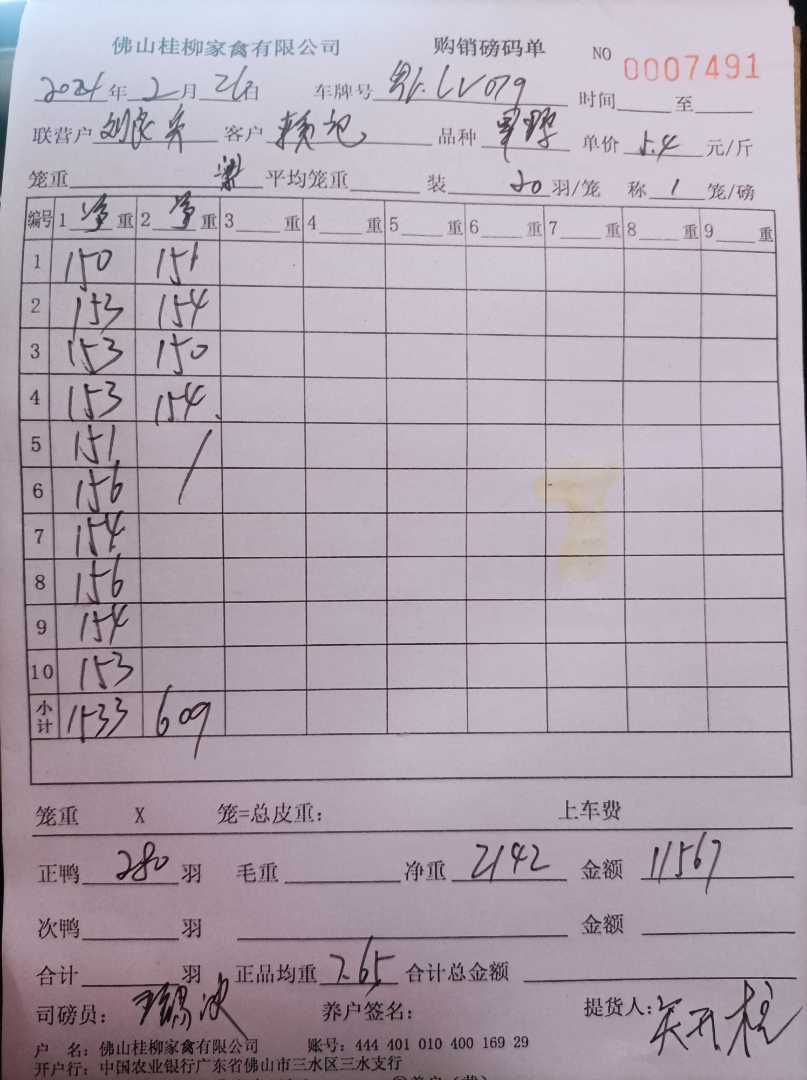 佛山桂柳家禽有限公司 购销磅码单 NO 0007491
2024年2月26日 车牌号 LV079 时间 至
联营户 客户 品种 单价 5.4 元/斤
笼重 平均笼重 装 20 羽/笼 称 1 笼/磅
编号 1 净 重 2 净 重 3 重 4 重 5 重 6 重 7 重 8 重 9 重
1 150 151
2 153 154
3 153 150
4 153 154
5 151 /
6 156
7 154
8 156
9 154
10 153
小计 1533 609
笼重 X 笼=总皮重: 上车费
正鸭 280 羽 毛重 净重 2142 金额 11567
次鸭 羽 金额
合计 羽 正品均重 7.65 合计总金额
司磅员: 养户签名: 提货人:
户 名: 佛山桂柳家禽有限公司 账号: 444 401 010 400 169 29
开户行: 中国农业银行广东省佛山市三水区三水支行